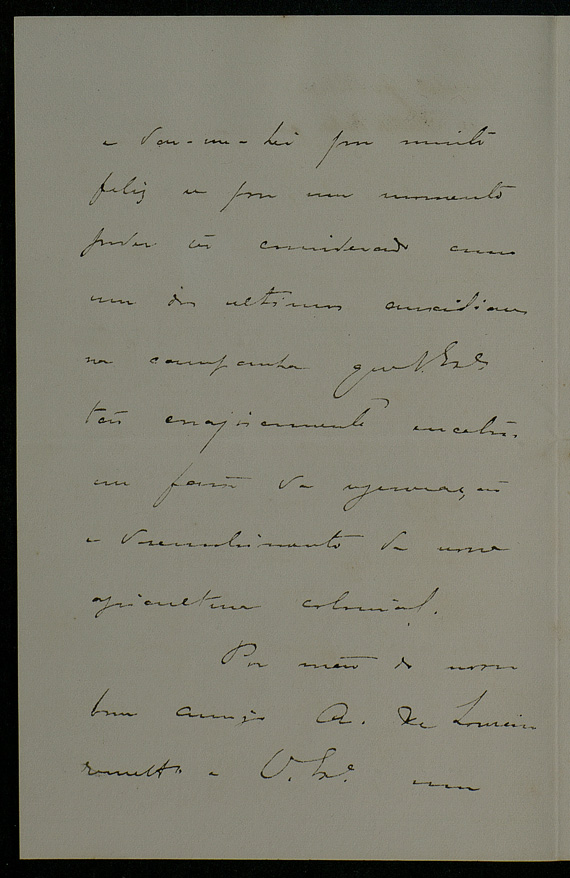 e dar-me-hei por muito
feliz se por um momento
poder ser considerado como
um dos ultimos
na campanha que V. Exª
tão energicamente encetou
em favor da regeneração
e desenvolvimento da nossa
agricultura colonial.
Por mão do nosso
bom amigo A. de Loureiro
remetto a V. Exª um